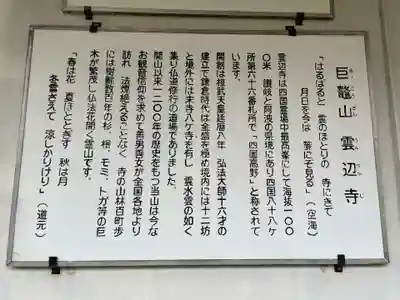 巨鼇山 雲辺寺
「はるばると 雲のほとりの 寺にきて
月日を今は 麓にぞ見る」（空海）
雲辺寺は四国霊場中最高峯にして海抜一〇〇
〇米 讃岐と阿波の県境にあり四国八十八ヶ
所第六十六番札所で、「四国高野」と称されて
います。
開創は桓武天皇延暦八年 弘法大師十六才の
建立で鎌倉時代は全盛を極め境内には十二坊
と場外には末寺八ヶ寺を有し 雲水雲の如く
集り仏道修行の道場でありました。
開山以来一二〇〇年の歴史をもつ当山は今な
お観音信仰を求めて善男善女が全国各地より
訪れ 法燈絶えることなく 寺の山林百町歩
には樹齢数百年の杉、桧、モミ、トガ等の巨
木が繁茂し仏法花開く霊山です。
「春は花 夏ほととぎす 秋は月
冬雪さえて 涼しかりけり」（道元）